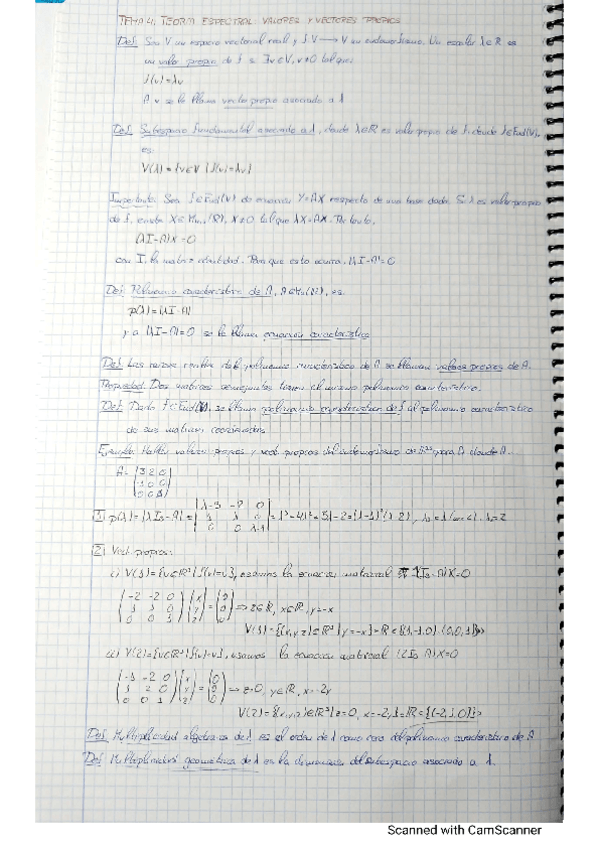 TEMA 4: TEORÍA ESPECTRAL: VALORES Y VECTORES PROPIOS
Def: Sea V un espacio vectorial real y f: V → V un endomorfismo. Un escalar λ∈R es
un valor propio de f si ∃v∈V, v≠0 tal que:
f(v)=λv
A v se le llama vector propio asociado a λ
Def: Subespacio fundamental asociado a λ, donde λ∈R es valor propio de f, donde f∈End(V),
es:
V(λ)={v∈V | f(v)=λv}
Importante: Sea f∈End(V) de ecuación Y=AX respecto de una base dada. Si λ es valor propio
de f, existe X∈ X≠0 tal que λX=AX. Por tanto,
(λI-A)X=0
con I, la matriz identidad. Para que esto ocurra, |λI-A|=0
Def: Polinomio característico de A, es:
p(λ)=|λI-A|
y a |λI-A|=0 se le llama ecuación característica
Def: Las raíces reales del polinomio característico de A se llaman valores propios de A.
Propiedad: Dos matrices semejantes tienen el mismo polinomio característico.
Def: Dado f∈End(V), se llama polinomio característico de f al polinomio característico
de sus matrices coordenadas.
Ejemplo: Hallar valores propios y vect. propios del endomorfismo de para A donde A...
A=
1 p(λ)=|λI₃-A|=
2 Vect. propios:
i) usamos la ecuación matricial (I₃-A)X=0
⇒ z∈R, x∈R, y=-x
ii) usamos la ecuación matricial (2I₃-A)X=0
⇒ z=0, y∈R, x=-2y
Def: Multiplicidad algebraica de λ es el orden de λ como cero del polinomio característico de A
Def: Multiplicidad geométrica de λ es la dimensión del subespacio asociado a λ.
Scanned with CamScanner